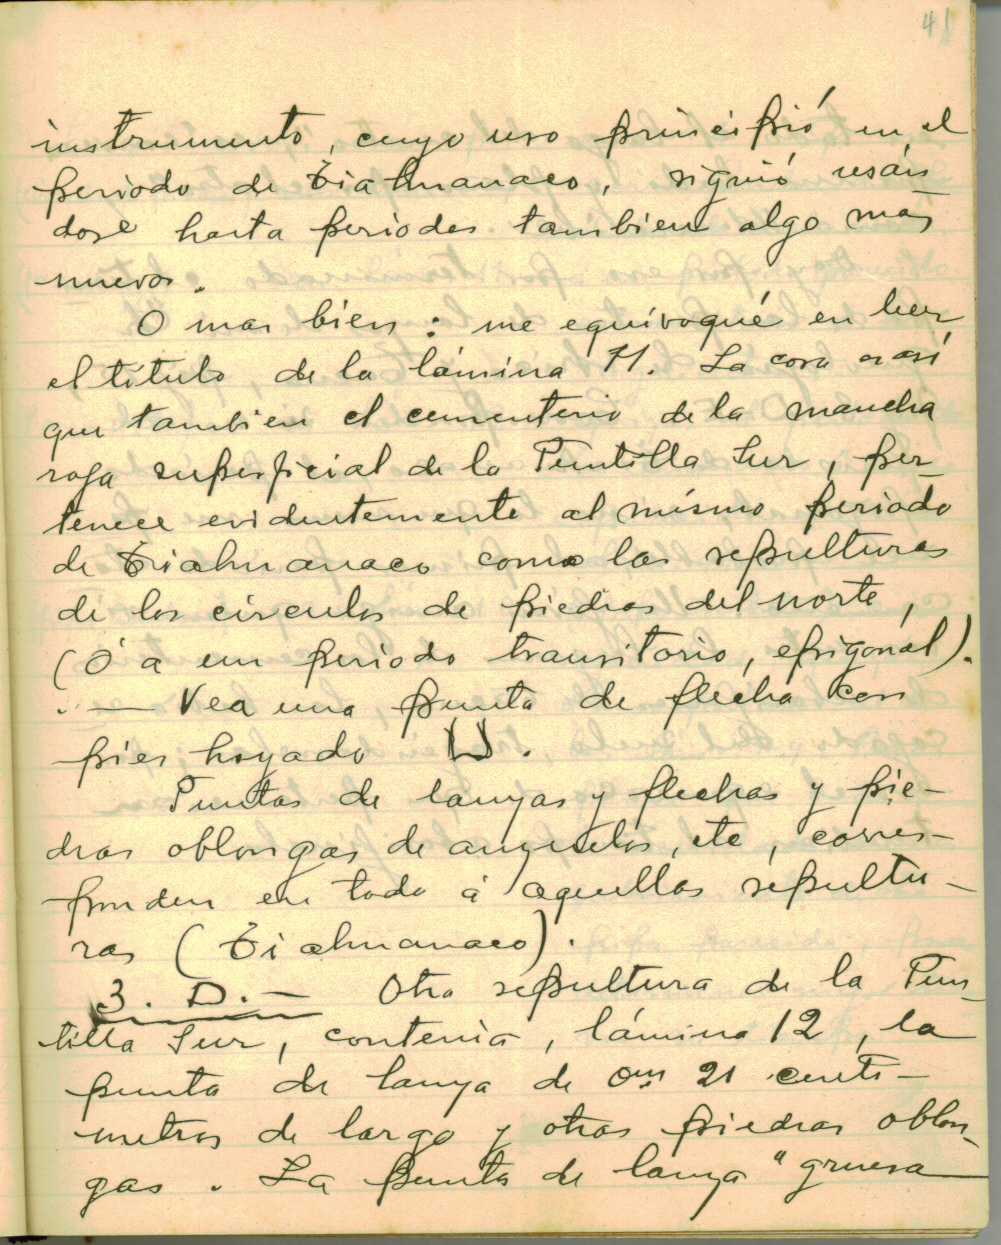 41
instrumento, cuyo uso principió en el
periodo de Tiahuanaco, siguió usán-
dose hasta periodos tambien algo mas
nuevos.
O mas bien: me equivoqué en leer
el título de la lámina 11. La cosa es asi
que tambien el cementerio de la mancha
roja superficial de la Puntilla Sur, per-
tenece evidentemente al mismo periodo
de Tiahuanaco como las sepulturas
de los circulos de piedras del norte,
(Ó a un periodo transitorio, epigonal).
. — Vea una punta de flecha con
pies hoyado .
Puntas de lanzas y flechas y pie-
dras oblongas de anzuelos, etc, corres-
ponden en todo á aquellas sepultu-
ras (Tiahuanaco).
3. D. — Otra sepultura de la Pun-
tilla Sur, contenia, lámina 12, la
punta de lanza de 0m 21 centi-
metros de largo y otras piedras oblon-
gas. La punta de lanza "gruesa